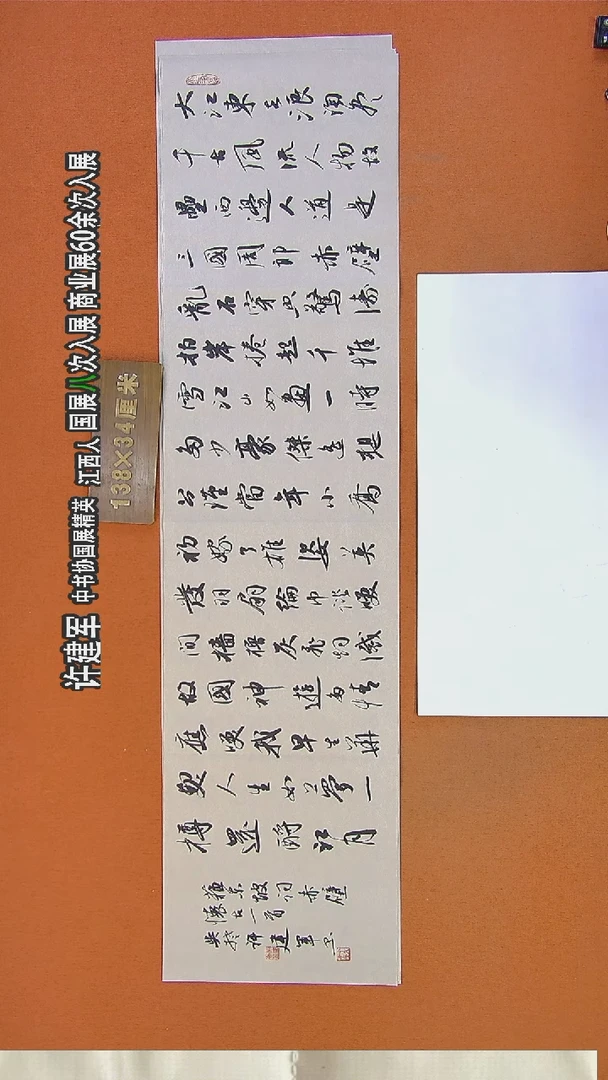 许建军 中书协国展精英 江西人 国展八次入展 商业展60余次入展
138×34厘米
大江東去浪淘盡
千古風流人物故
壘西邊人道是
三國周郎赤壁
亂石穿空驚濤
拍岸捲起千堆
雪江山如畫一時
多少豪傑遙想
公瑾當年小喬
初嫁了雄姿英
發羽扇綸巾談笑
間檣櫓灰飛煙滅
故國神遊多情
應笑我早生華
髮人生如夢一
樽還酹江月
蘇東坡詞赤壁
懷古一首
許建軍書